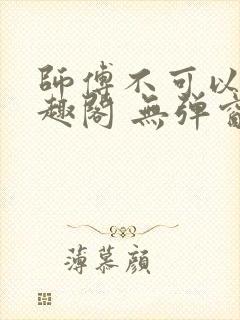 師傅不可以
趣閣 無彈
薄慕顏